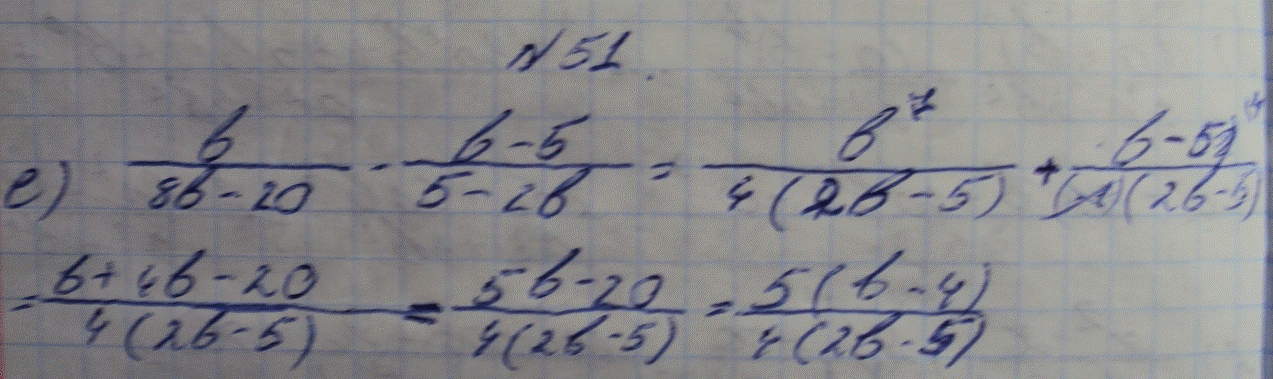 №51.
е) b/(8b-20) - (b-5)/(5-2b) = b/(4(2b-5)) + (b-5)/((-1)(2b-5))
= (b+4b-20)/(4(2b-5)) = (5b-20)/(4(2b-5)) = 5(b-4)/(4(2b-5))